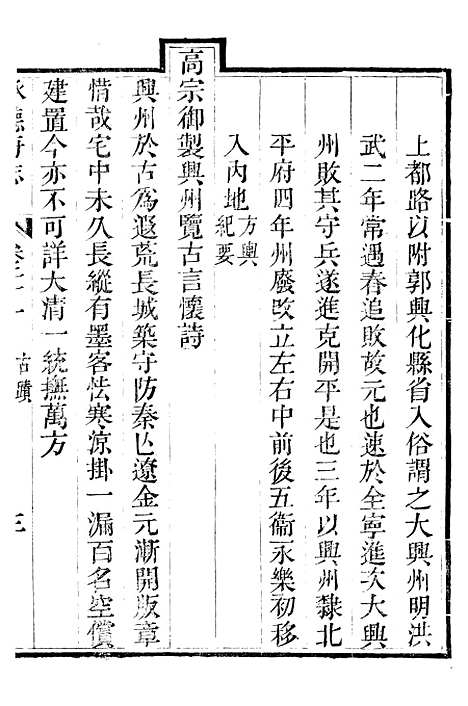 上都路以附郭興化縣省入俗謂之大興州明洪
武二年常遇春追敗故元也速於全寧進次大興
州敗其守兵遂進克開平是也三年以興州隸北
平府四年州廢改立左右中前後五衛永樂初移
入內地方輿
紀要
高宗御製興州覽古言懷詩
興州於古為遐荒長城築守防秦亡遼金元漸開版章
惜哉宅中未久長縱有墨客怯寒涼掛一漏百名空償
建置今亦不可詳大清一統撫萬方
承德府志 卷二十 古蹟 三